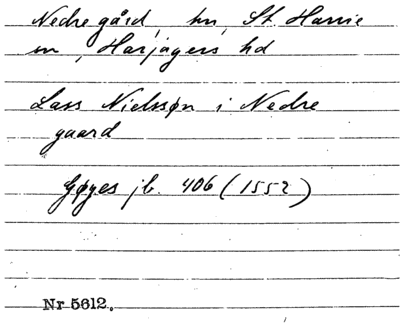 Nedregård, hn, St. Harrie
sn, Harjagers hd
Lass Nielssøn i Nedre
gaard
Gøyes jb. 406 (1552)
Nr 5612.